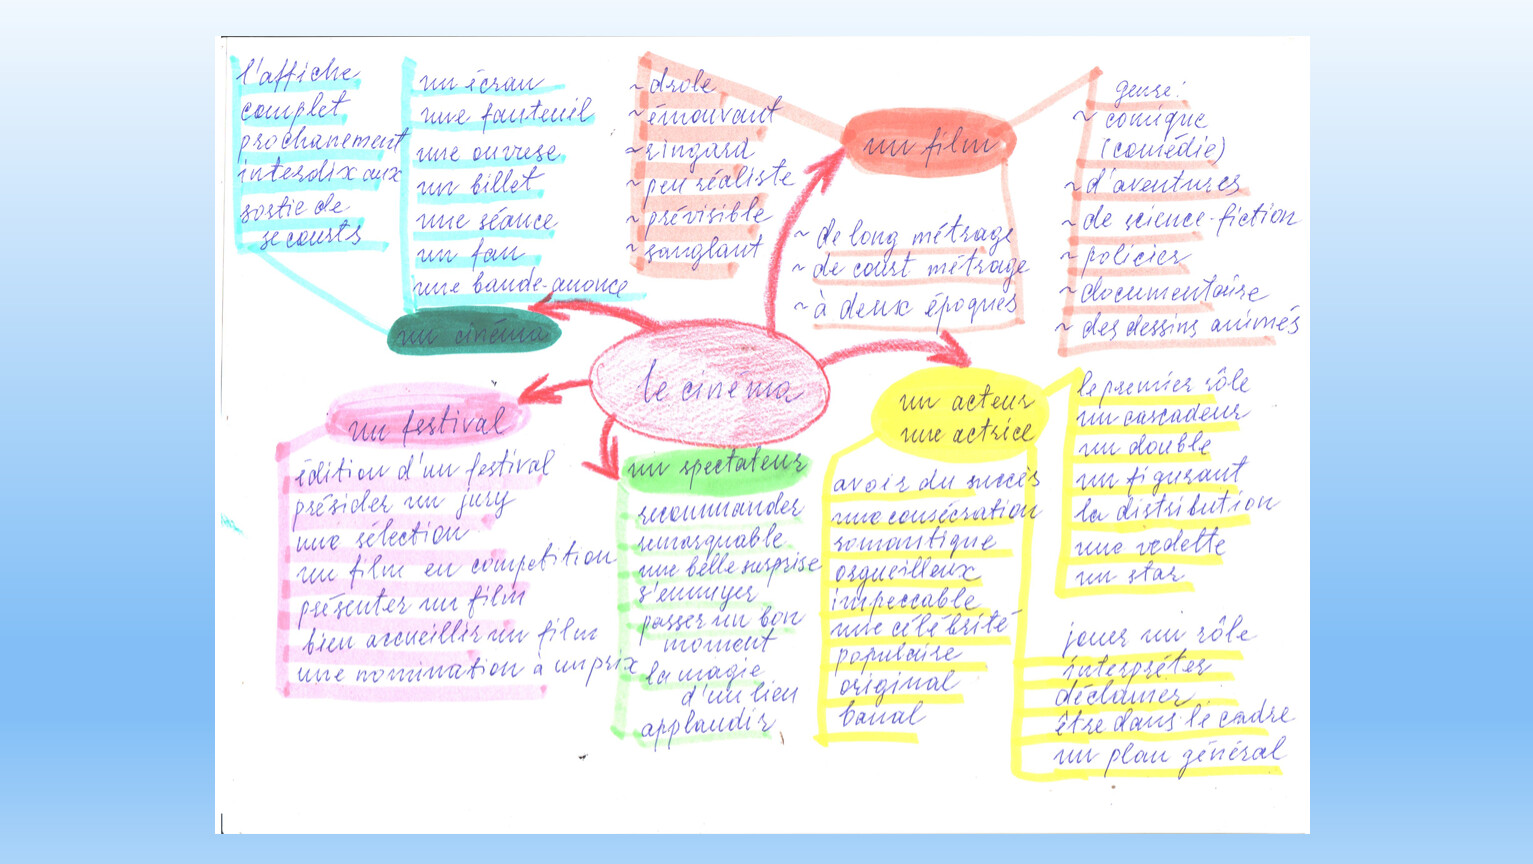 le cinéma
un cinéma
l'affiche
complet
prochanement
interdix aux
sortie de
secourts
un écran
une fauteuil
une ouvrese
un billet
une séance
un fan
une bande-anonce
un film
~ drole
~ émouvant
~ ringard
~ peu réaliste
~ prévisible
~ sanglant
~ de long métrage
~ de court métrage
~ à deux époques
genre:
~ comique
(comédie)
~ d'aventures
~ de science-fiction
~ policier
~ documentaire
~ des dessins animés
un acteur
une actrice
le premier rôle
un cascadeur
un double
un figurant
la distribution
une vedette
un star
avoir du succès
une consécration
romantique
orgueilleux
impeccable
une célébrité
populaire
original
banal
jouer un rôle
interpréter
déclamer
être dans le cadre
un plan général
un spectateur
recommander
remarquable
une belle surprise
s'ennuyer
passer un bon
moment
la magie
d'un lieu
applaudir
un festival
édition d'un festival
présider un jury
une sélection
un film en competition
présenter un film
bien accueillir un film
une nomination à un prix